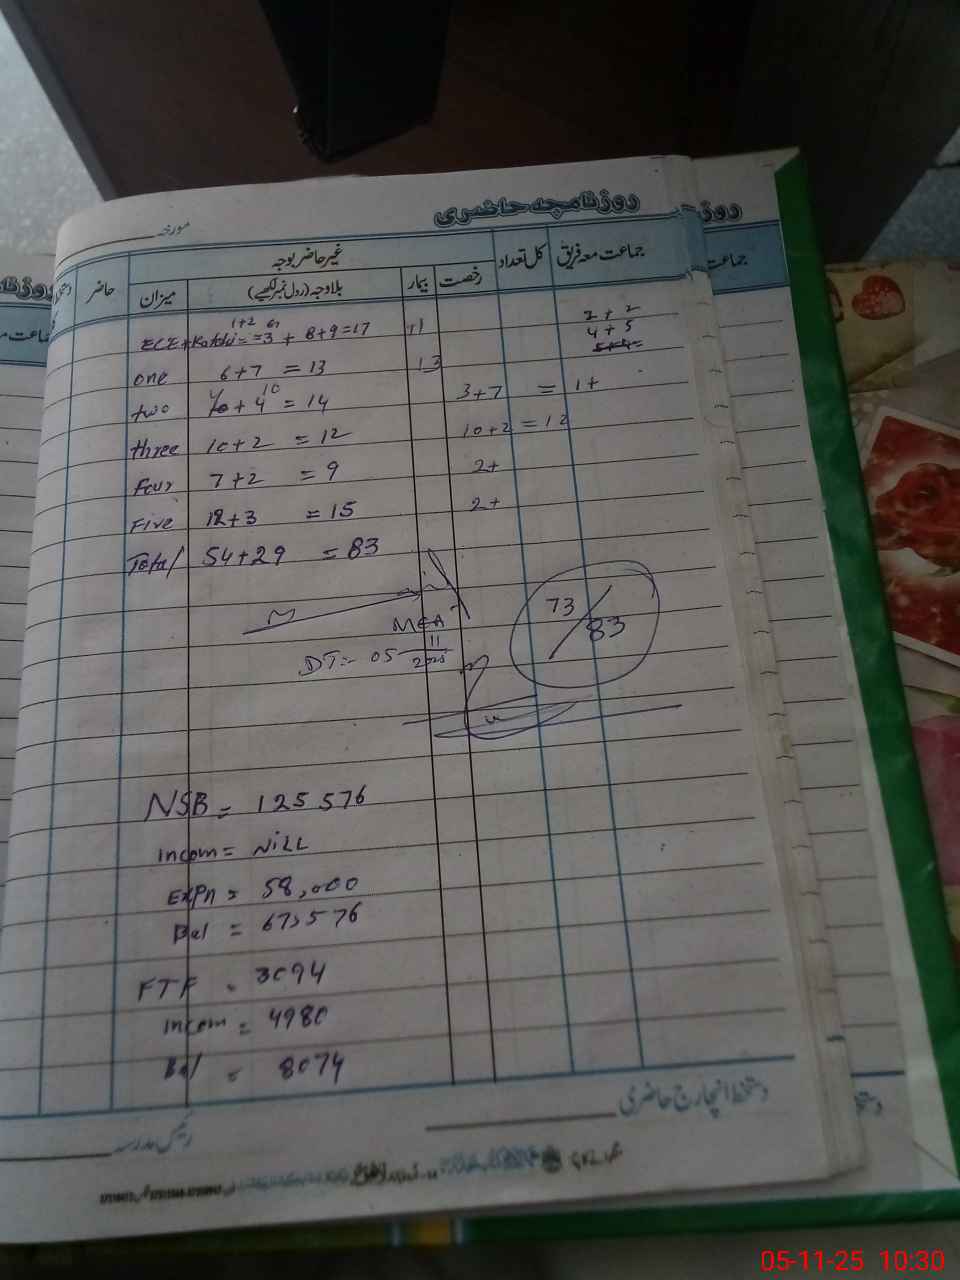 روزنامچہ حاضری
مورخہ
جماعت معہ فریق
کل تعداد
غیر حاضر بوجہ
رخصت
بیمار
بلاوجہ (رول نمبر لکھیے)
میزان
حاضر
ECE+Katchi = =3 + 8+9=17
1+2
4 + 5
one 6+7 = 13 13
two + 4 = 14 3+7 = 1+
10
three 10+2 = 12 10+2 = 12
Four 7+2 = 9 2+
Five 12+3 = 15 2+
Total 54+29 = 83
73/83
MEA
DT:- 05-11-2025
NSB = 125576
incom = NiLL
EXPn = 58,000
Bal = 67,576
FTF = 3094
incom = 4980
Bal = 8074
دستخط انچارج حاضری
رئیس مدرسہ
روز
جماعت
05-11-25 10:30